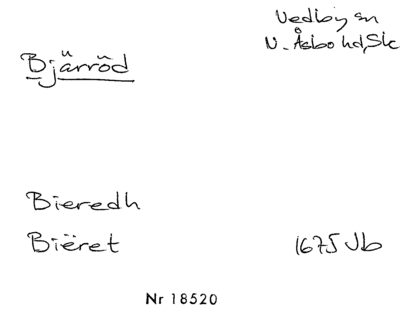 Vedby sn
Bjärröd
N. Åsbo hd, Sk
Bieredh
Biëret 1675 Jb
Nr 18520